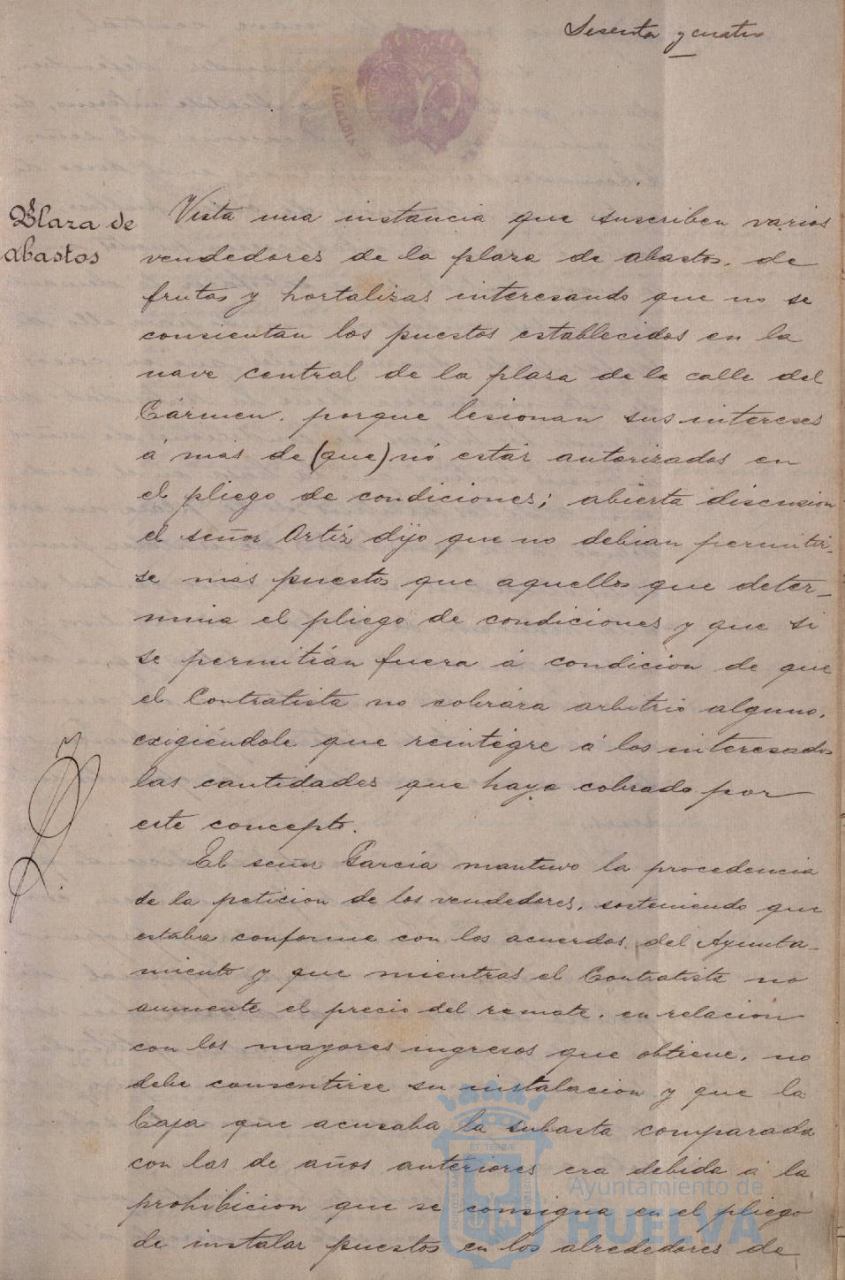 Sesenta y cuatro
ALCALDIA
Plaza de
abastos
Vista una instancia que suscriben varios
vendedores de la plaza de abastos, de
frutas y hortalizas interesando que no se
consientan los puestos establecidos en la
nave central de la plaza de la calle del
Cármen, porque lesionan sus intereses
á mas de (que) nó estár autorizados en
el pliego de condiciones; abierta discusion
el señor Ortíz dijo que no debian permitir-
se mas puestos que aquellos que deter-
mina el pliego de condiciones y que si
se permitian fuera á condicion de que
el Contratista no cobrára arbitrio alguno,
exigiéndole que reintégre á los interesados
las cantidades que haya cobrado por
este concepto.
El señor Garcia mantuvo la procedencia
de la peticion de los vendedores, sosteniendo que
estaba conforme con los acuerdos del Ayunta-
miento y que mientras el Contratista no
aumente el precio del remate, en relacion
con los mayores ingresos que obtiene, no
debe consentirse su instalacion y que la
baja que acusaba la subasta comparada
con las de años anteriores era debida á la
prohibicion que se consigna en el pliego
de instalar puestos en los alrededores de
Ayuntamiento de
HUELVA